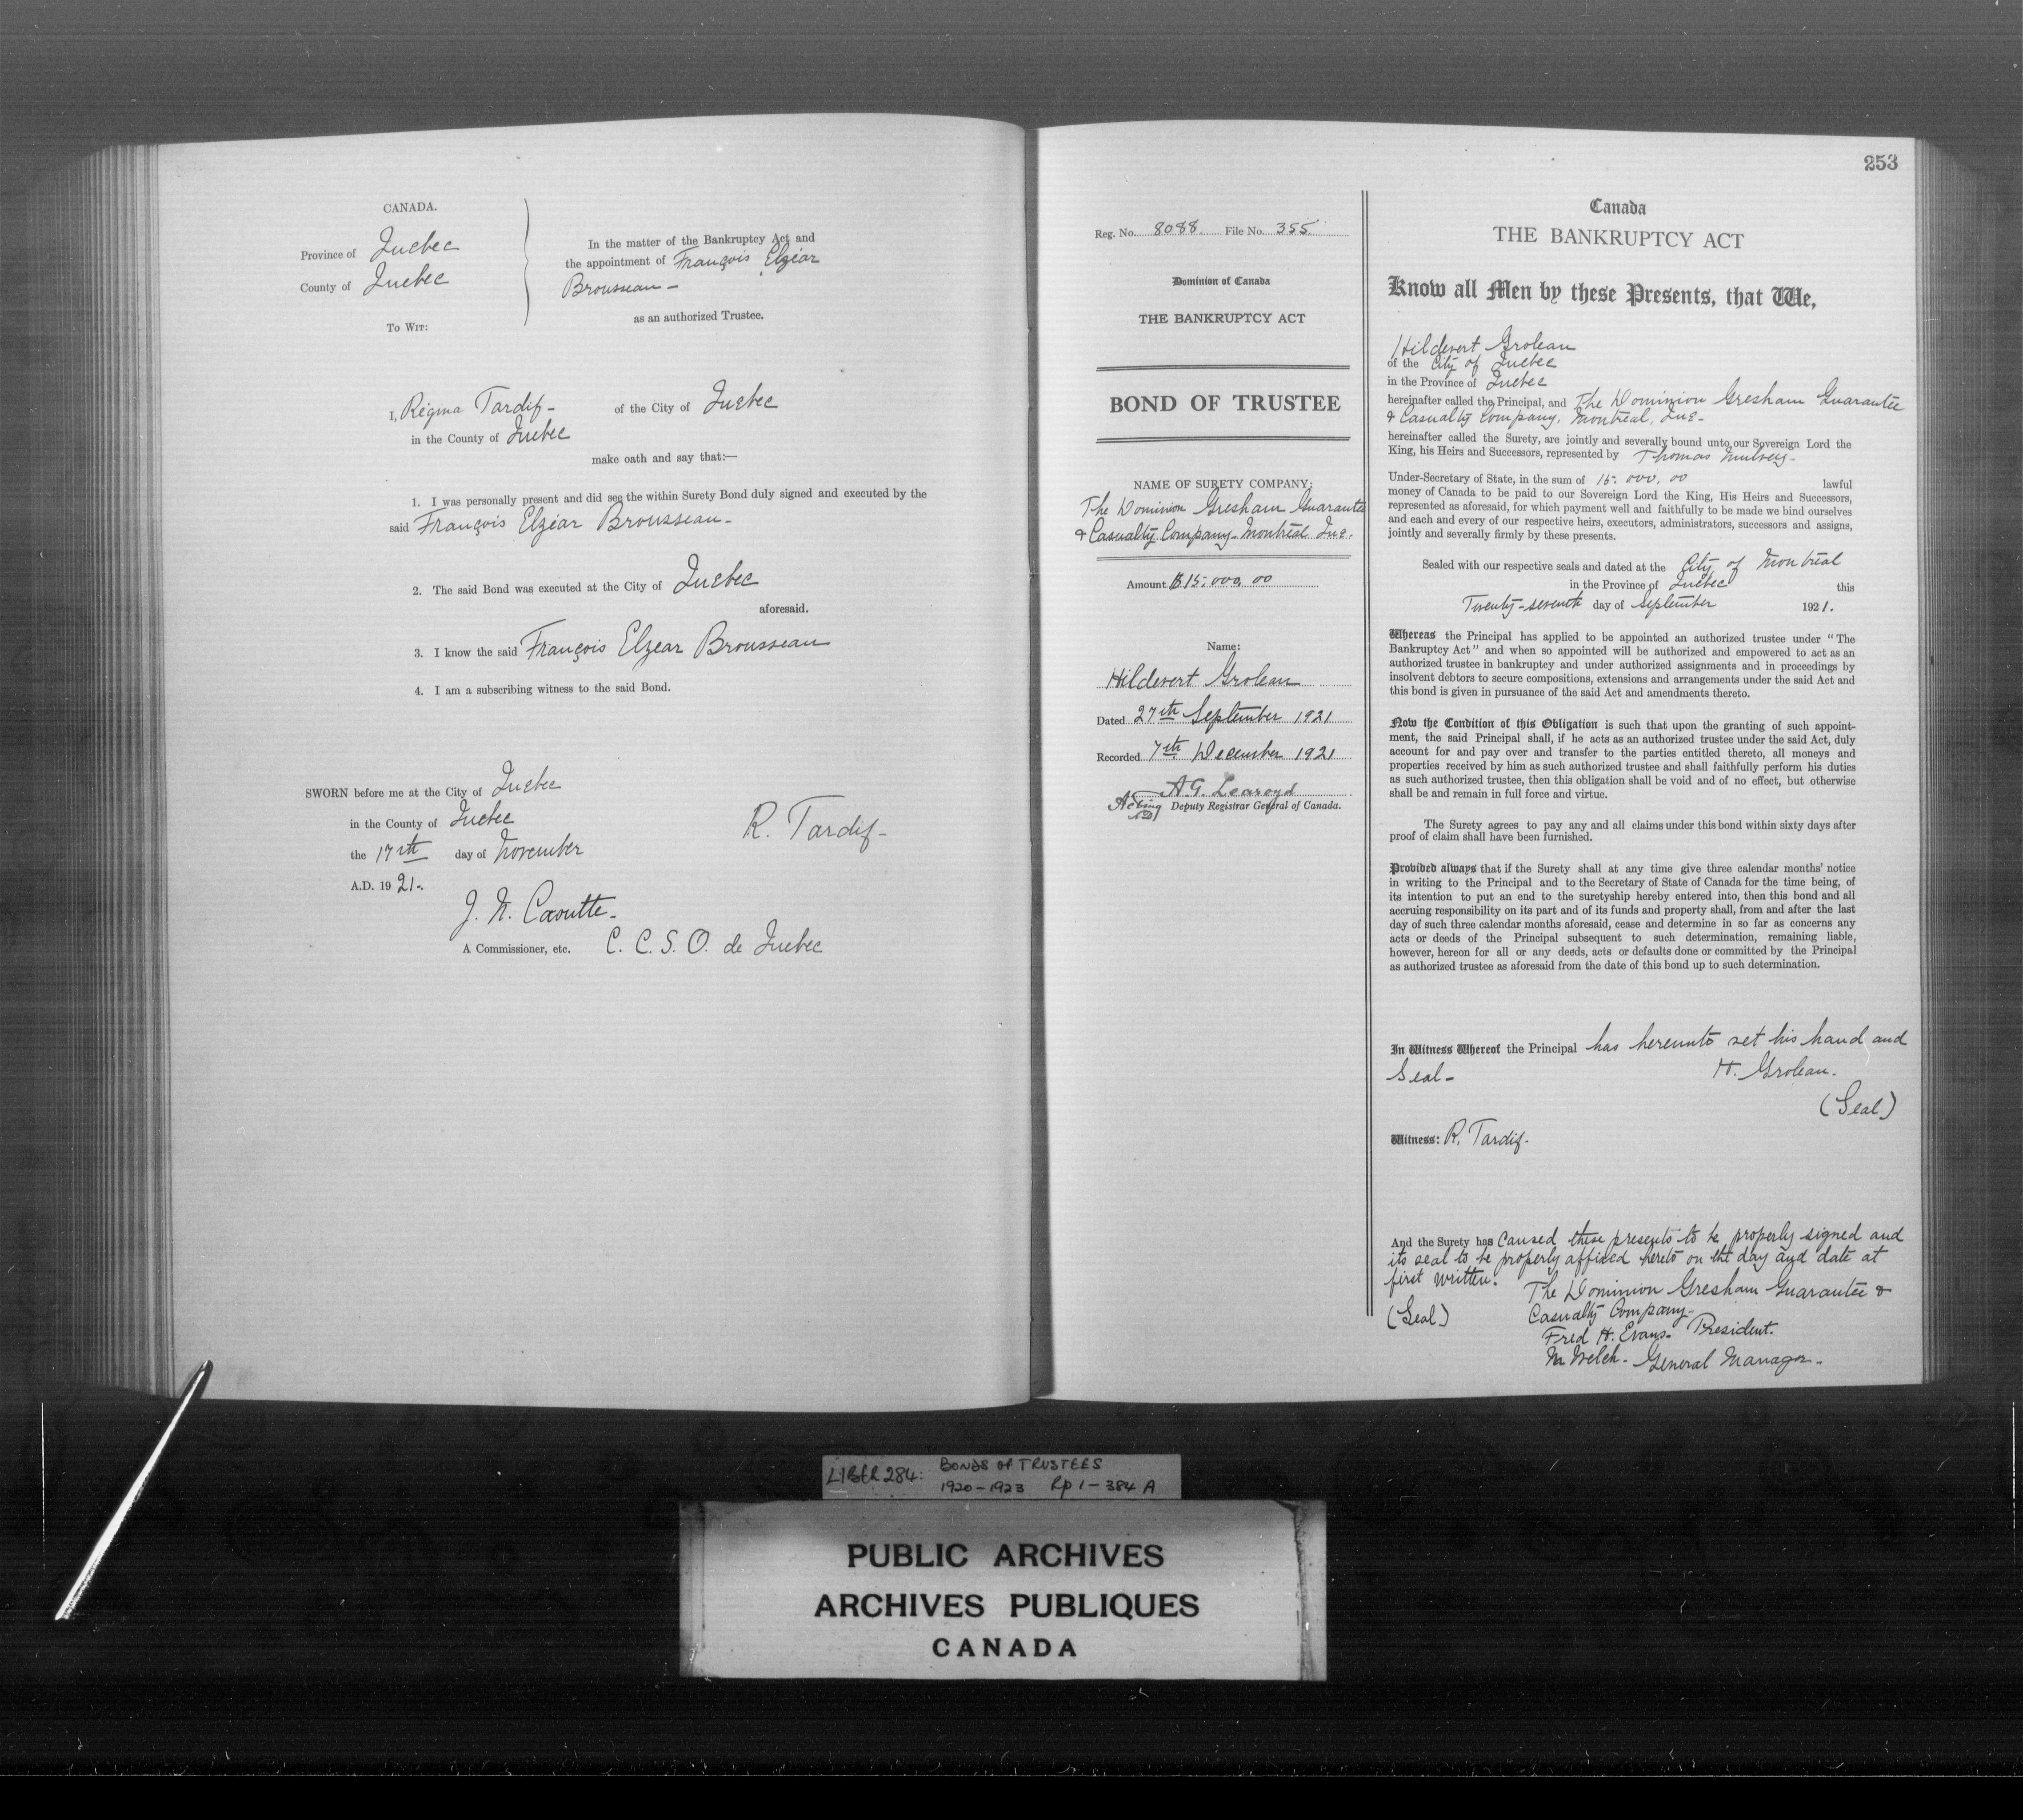 CANADA.
Province of Quebec
County of Quebec
To Wit:
In the matter of the Bankruptcy Act and
the appointment of François Elzéar
Brousseau -
as an authorized Trustee.
I, Régina Tardif - of the City of Quebec
in the County of Quebec
make oath and say that:—
1. I was personally present and did see the within Surety Bond duly signed and executed by the
said François Elzéar Brousseau -
2. The said Bond was executed at the City of Quebec
aforesaid.
3. I know the said François Elzear Brousseau
4. I am a subscribing witness to the said Bond.
SWORN before me at the City of Quebec
in the County of Quebec
the 17th day of November
A.D. 1921.
R. Tardif -
J. N. Caoutte -
A Commissioner, etc. C. C. S. O. de Quebec
Reg. No. 8088. File No. 355.
Dominion of Canada
THE BANKRUPTCY ACT
BOND OF TRUSTEE
NAME OF SURETY COMPANY:
The Dominion Gresham Guarantee
& Casualty Company - Montreal Que.
Amount $15,000.00
Name:
Hildevert Groleau
Dated 27th September 1921
Recorded 7th December 1921
A. G. Learoyd
Acting Deputy Registrar General of Canada.
253
Canada
THE BANKRUPTCY ACT
Know all Men by these Presents, that We,
Hildevert Groleau
of the City of Quebec
in the Province of Quebec
hereinafter called the Principal, and The Dominion Gresham Guarantee
& Casualty Company, Montreal, Que -
hereinafter called the Surety, are jointly and severally bound unto our Sovereign Lord the
King, his Heirs and Successors, represented by Thomas Mulvey -
Under-Secretary of State, in the sum of 15,000.00 lawful
money of Canada to be paid to our Sovereign Lord the King, His Heirs and Successors,
represented as aforesaid, for which payment well and faithfully to be made we bind ourselves
and each and every of our respective heirs, executors, administrators, successors and assigns,
jointly and severally firmly by these presents.
Sealed with our respective seals and dated at the City of Montreal
in the Province of Quebec this
Twenty-seventh day of September 1921.
Whereas the Principal has applied to be appointed an authorized trustee under "The
Bankruptcy Act" and when so appointed will be authorized and empowered to act as an
authorized trustee in bankruptcy and under authorized assignments and in proceedings by
insolvent debtors to secure compositions, extensions and arrangements under the said Act and
this bond is given in pursuance of the said Act and amendments thereto.
Now the Condition of this Obligation is such that upon the granting of such appoint-
ment, the said Principal shall, if he acts as an authorized trustee under the said Act, duly
account for and pay over and transfer to the parties entitled thereto, all moneys and
properties received by him as such authorized trustee and shall faithfully perform his duties
as such authorized trustee, then this obligation shall be void and of no effect, but otherwise
shall be and remain in full force and virtue.
The Surety agrees to pay any and all claims under this bond within sixty days after
proof of claim shall have been furnished.
Provided always that if the Surety shall at any time give three calendar months' notice
in writing to the Principal and to the Secretary of State of Canada for the time being, of
its intention to put an end to the suretyship hereby entered into, then this bond and all
accruing responsibility on its part and of its funds and property shall, from and after the last
day of such three calendar months aforesaid, cease and determine in so far as concerns any
acts or deeds of the Principal subsequent to such determination, remaining liable,
however, hereon for all or any deeds, acts or defaults done or committed by the Principal
as authorized trustee as aforesaid from the date of this bond up to such determination.
In Witness Whereof the Principal has hereunto set his hand and
Seal - H. Groleau.
(Seal)
Witness: R. Tardif.
And the Surety has caused these presents to be properly signed and
its seal to be properly affixed hereto on the day and date at
first written.
The Dominion Gresham Guarantee &
(Seal) Casualty Company -
Fred H. Evans - President.
M Welch - General Manager -
LIBER 284: BONDS OF TRUSTEES
1920-1923 Pp 1-384 A
PUBLIC ARCHIVES
ARCHIVES PUBLIQUES
CANADA